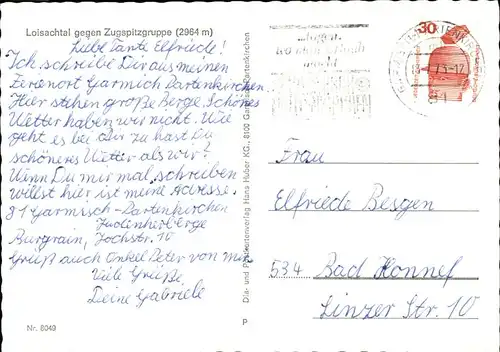 Loisachtal gegen Zugspitzgruppe (2964 m)
Liebe Tante Elfriede!
Ich schreibe Dir aus meinen
Ferienort Garmich Partenkirchen.
Hier stehen große Berge. Schönes
Wetter haben wir nicht. Wie
geht es bei dir zu hast Du
schöneres Wetter als wir?
Wenn Du mir mal schreiben
willst hier ist meine Adresse.
81 Garmisch-Partenkirchen
Judenherberge
Burgrain, Jochstr. 10
Grüß auch Onkel Peter von mir
Viele Grüße
Deine Gabriele
Nr. 8049
Dia- und Postkartenverlag Hans Huber KG., 8100 Garmisch-Partenkirchen
P
30
Frau
Elfriede Besgen
534 Bad Honnef
Linzer Str. 10